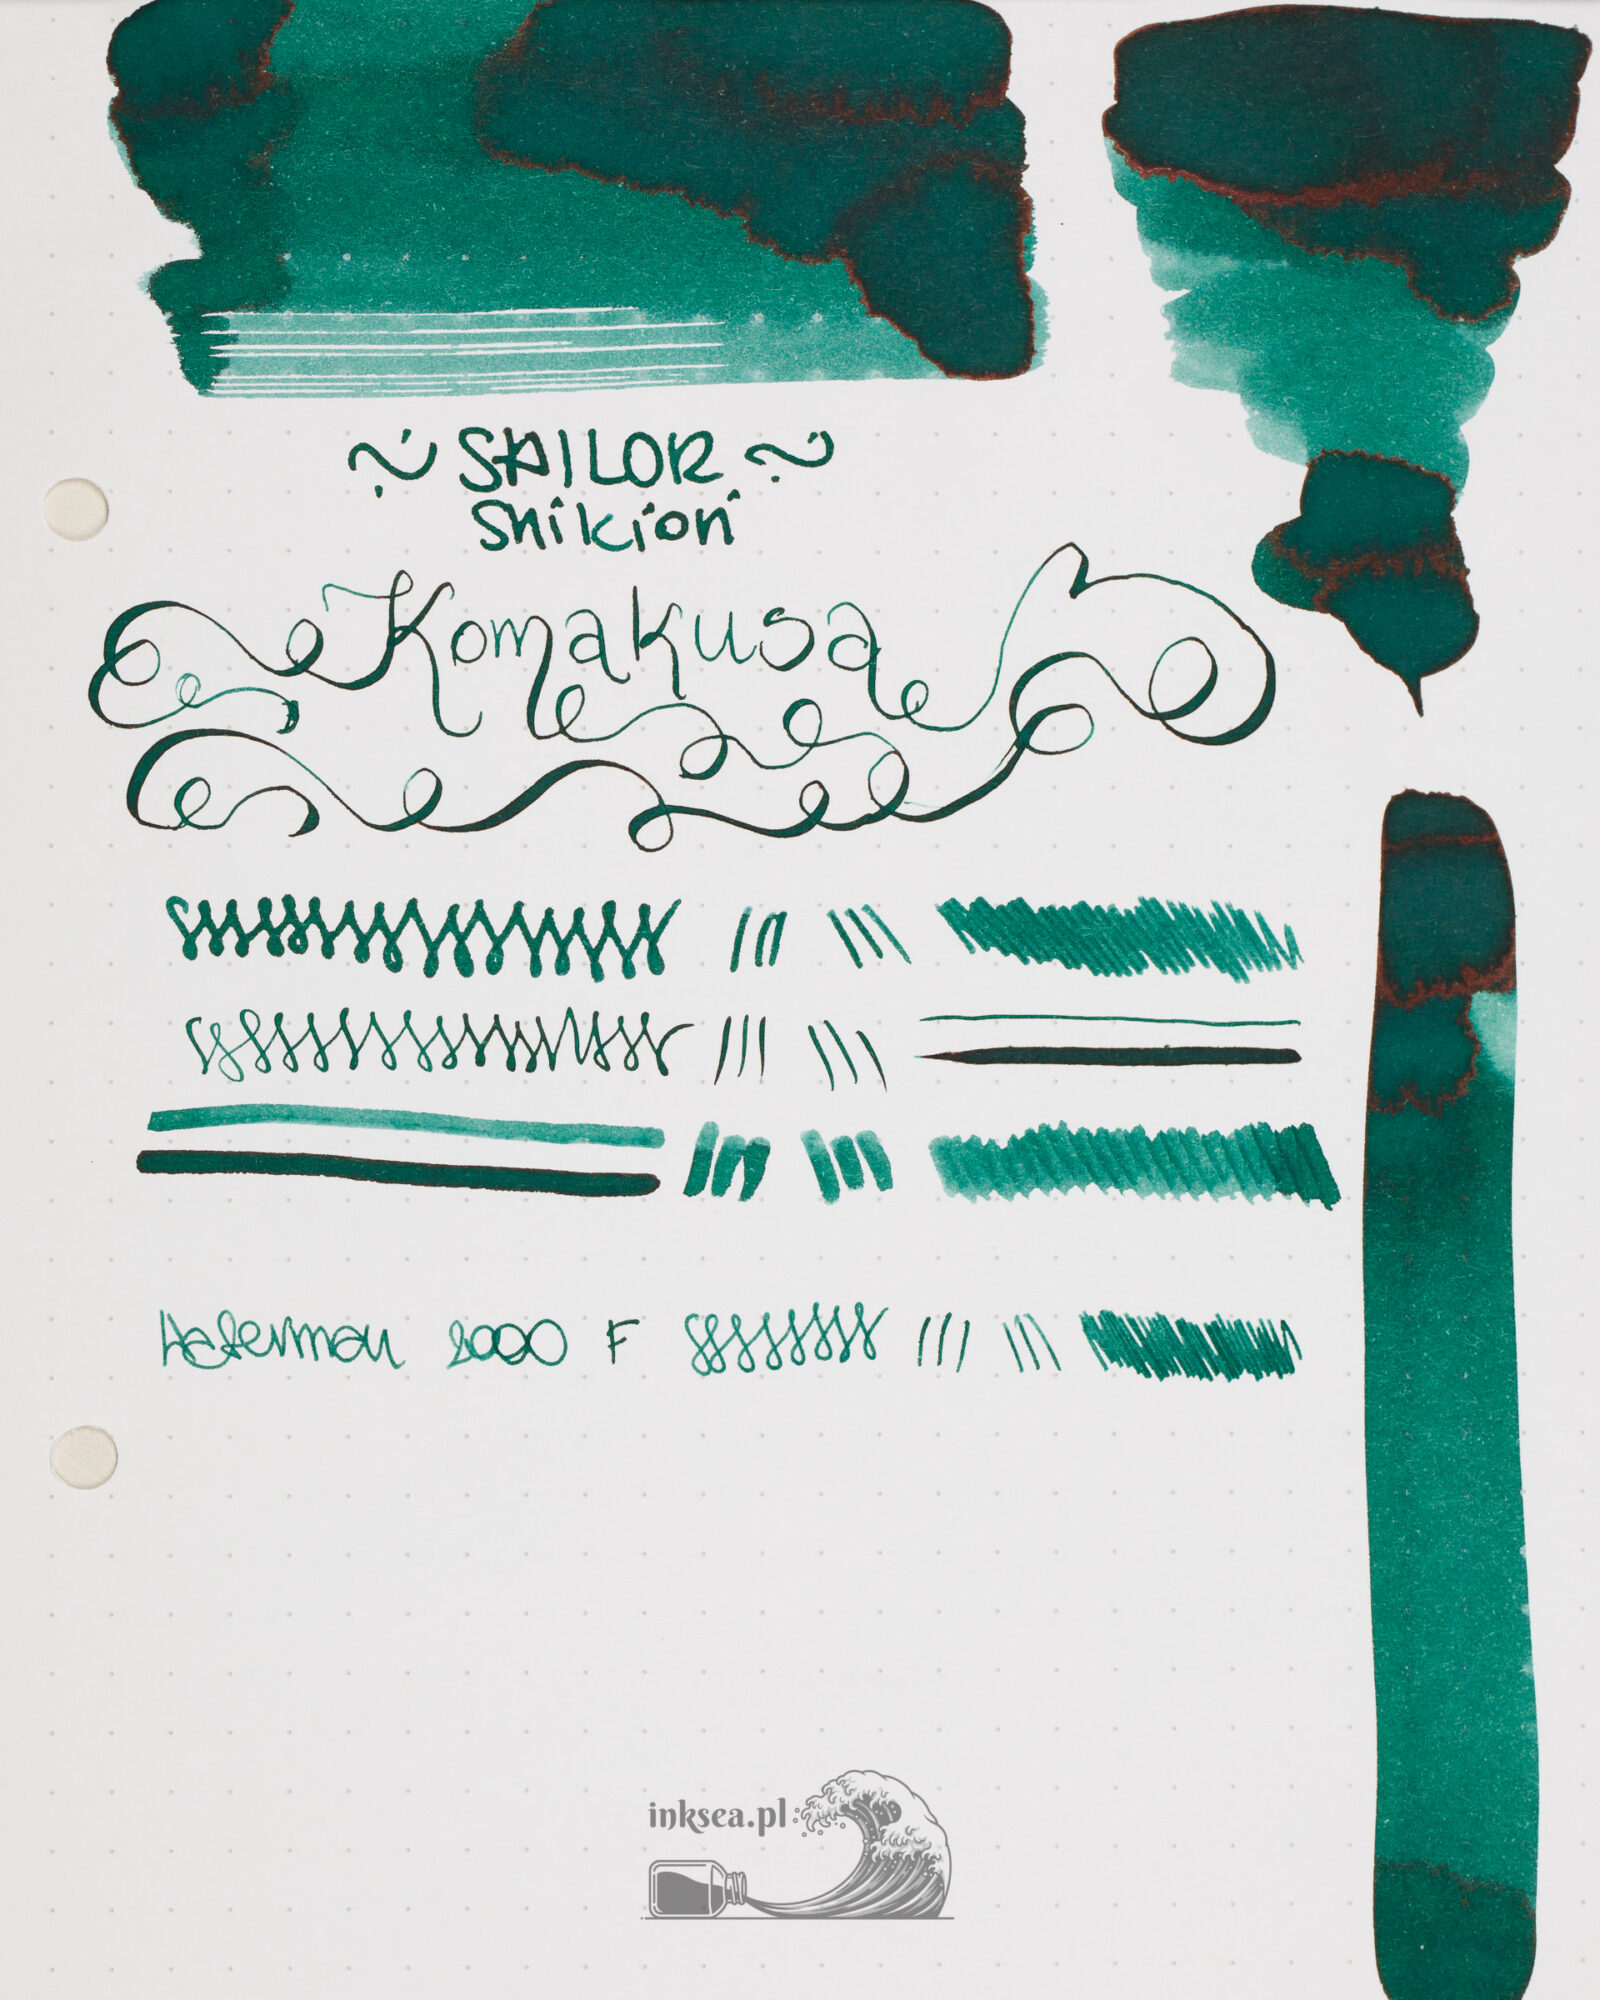 ~ SAILOR ~
Shikiori
Komakusa
Waterman 2000 F
inksea.pl